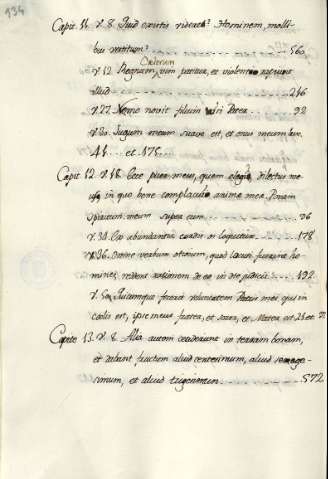 134
Capit. 11. v. 8. Quid existis videre? Hominem, molli-
bus vestitum? ..... 560
v. 12. Regnum Cœlorum vim patitur, et violenti rapiunt
illud ..... 246
v. 27. Nemo novit filium nisi Pater ..... 92
v. 30. Jugum meum suave est, et onus meum leve
44 .... et 178
Capit. 12. v. 18. Ecce puer meus, quem elegi, dilectus me-
us in quo bene complacuit animæ meæ. Ponam
spiritum meum super eum ..... 36
v. 34. Ex abundantia cordis os loquitur ..... 178
v. 36. Omne verbum otiosum, quod locuti fuerint ho-
mines, reddent rationem de eo in die judicii ..... 492
v. 50. Quicumque fecerit voluntatem Patris mei qui in
cœlis est, ipse meus frater, et soror, et Mater est
Capite 13. v. 8. Alia autem ceciderunt in terram bonam,
et dabant fructum aliud centesimum, aliud sexage-
simum, et aliud trigesimum ..... 572